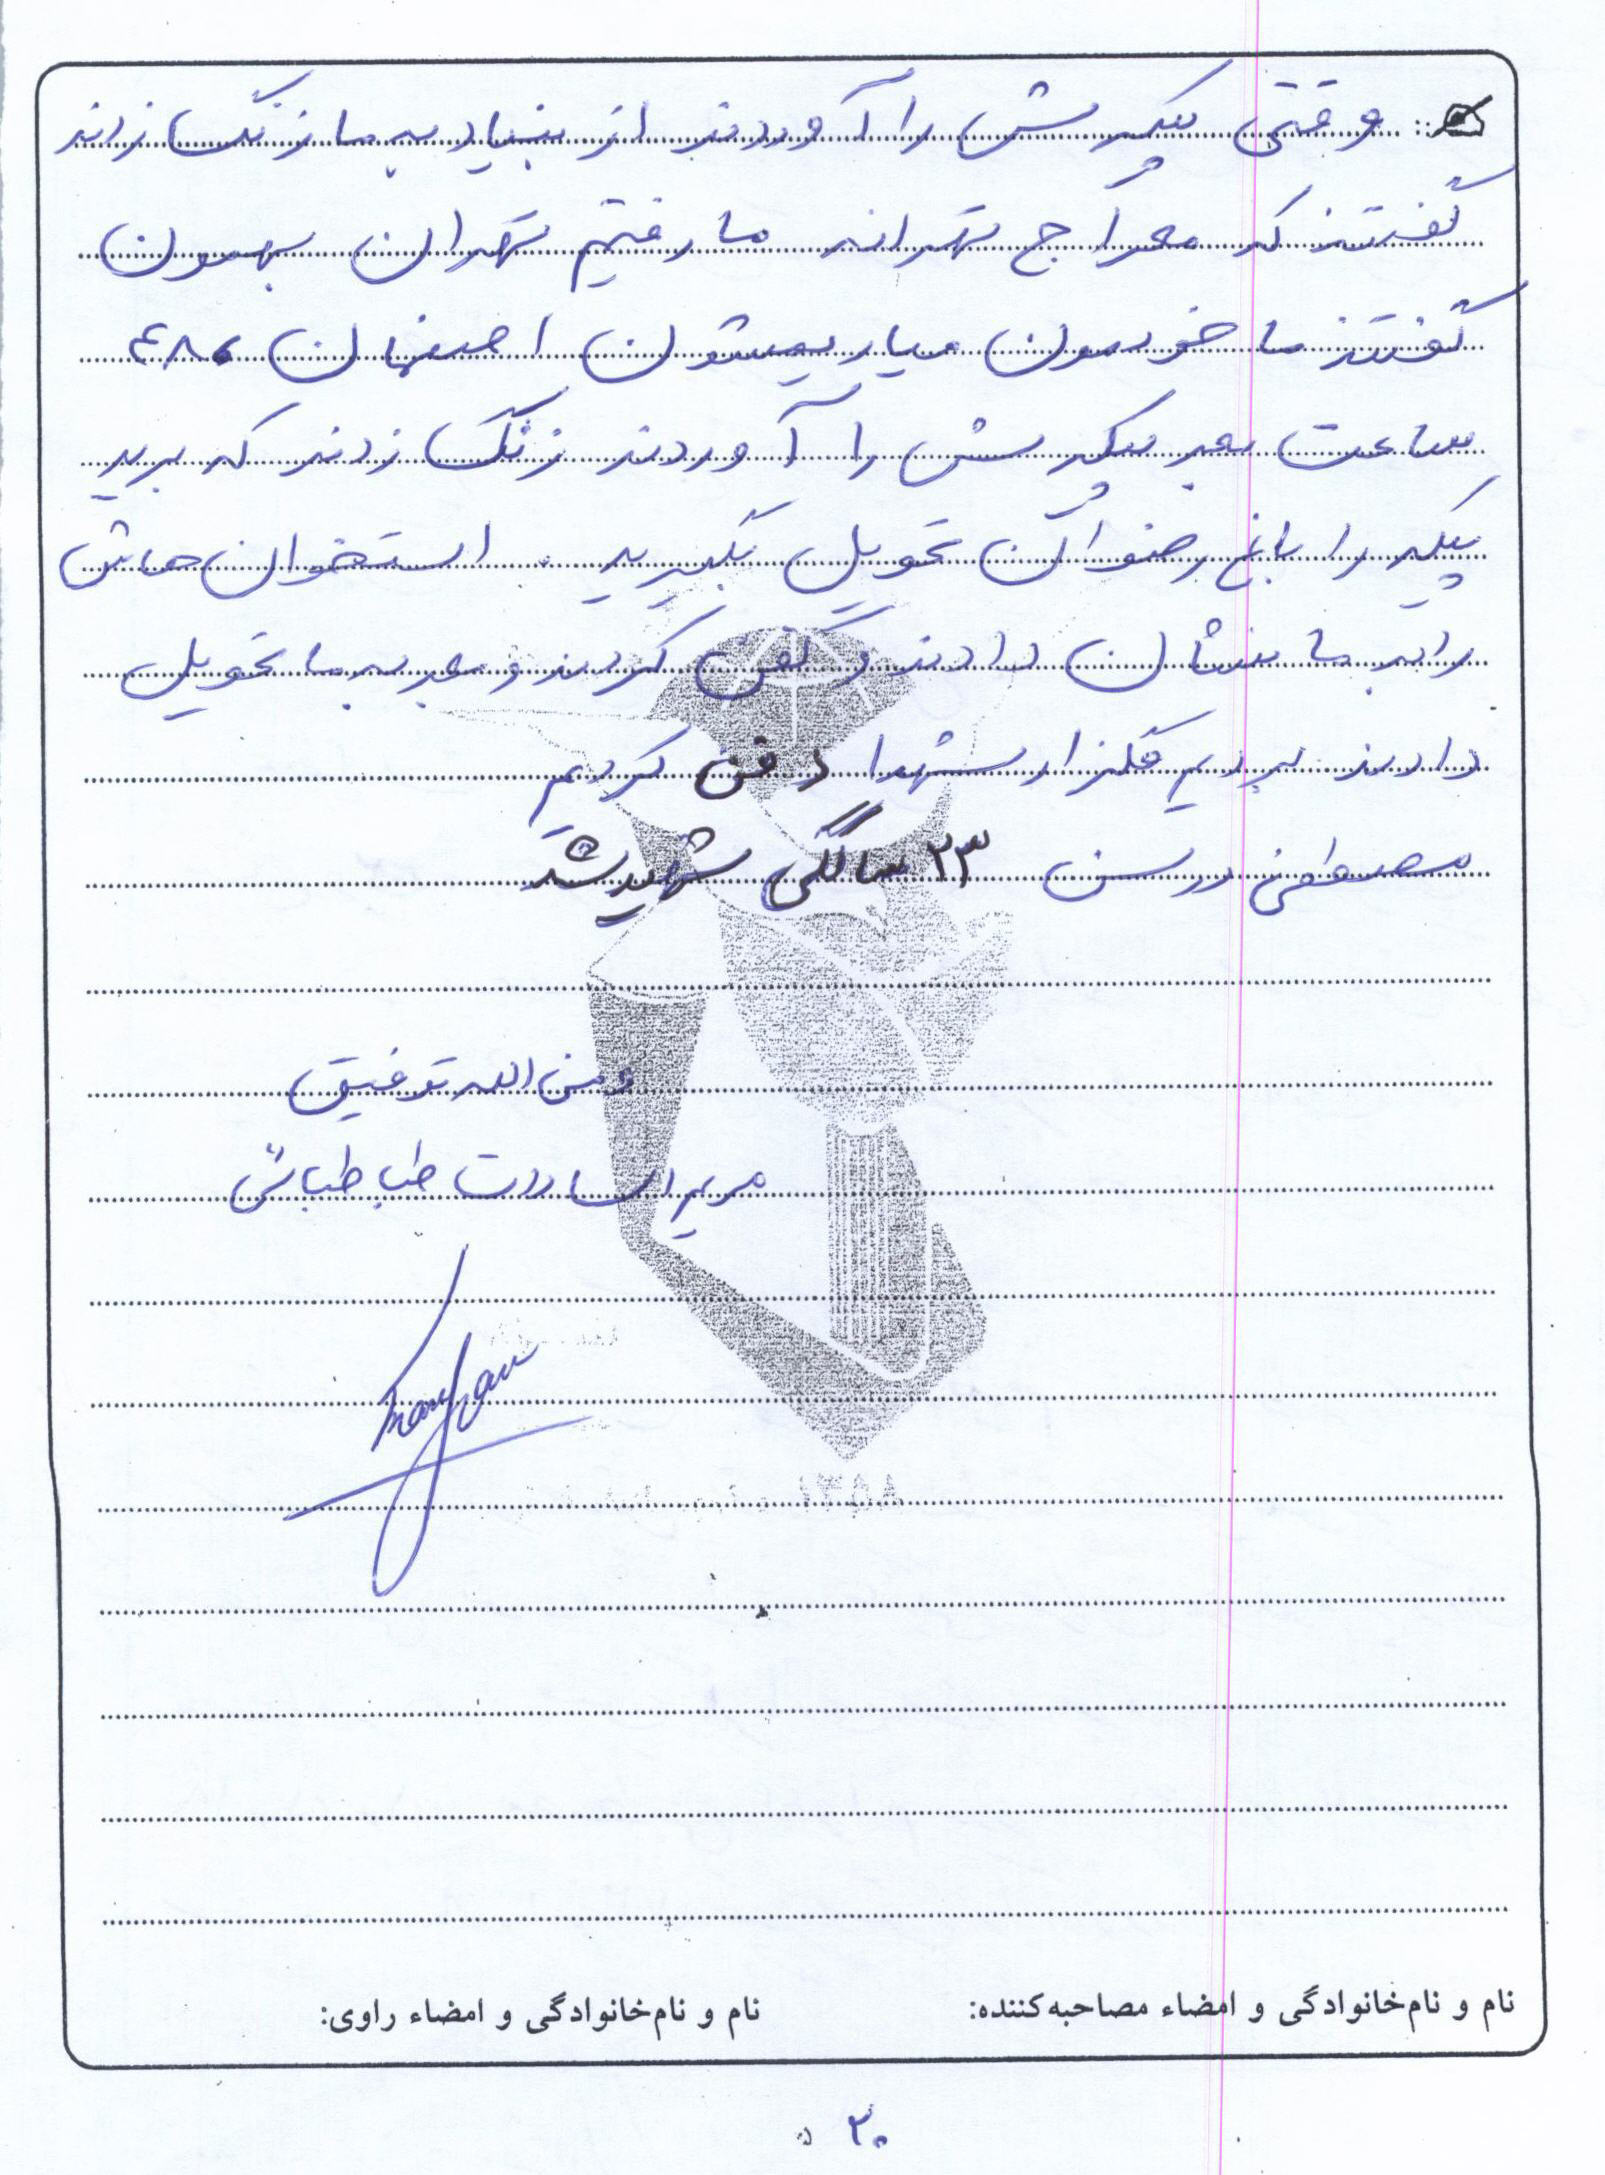 وقتی پیکرش را آوردند از بنیاد به ما زنگ زدند
گفتند که معراج تهرانه ما رفتیم تهران بهمون
گفتند ما خودمون میاریمشون اصفهان ۴۸
ساعت بعد پیکرش را آوردند زنگ زدند که برید
پیکر را باغ رضوان تحویل بگیرید. استخوان هاش
را به ما نشان دادند و کفن کردند و بعد به ما تحویل
دادند بردیم گلزار شهدا دفن کردیم
مصطفی در سن ۲۳ سالگی شهید شد
و من الله توفیق
مریم السادات طباطبائی
نام و نام‌خانوادگی و امضاء مصاحبه‌کننده: نام و نام‌خانوادگی و امضاء راوی:
۲۰